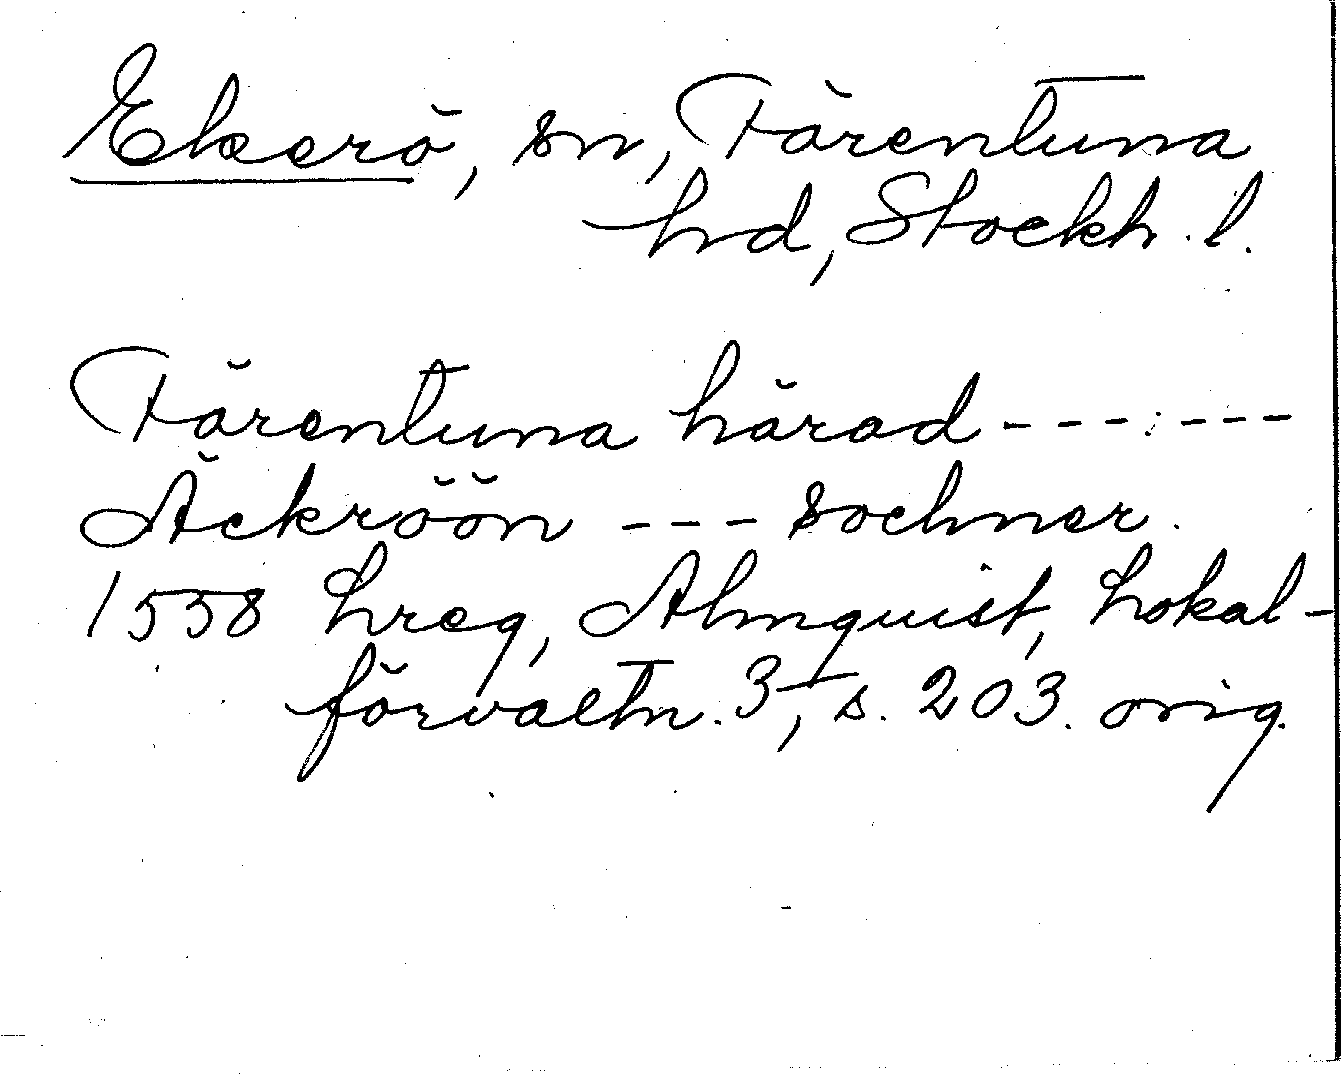 Ekerö, sn, Färentuna
hd, Stockh. l.
Färentuna härad --- ---
Äckröön --- sochner.
1558 hreg, Almquist, Lokal-
förvaltn. 3, s. 203. orig.